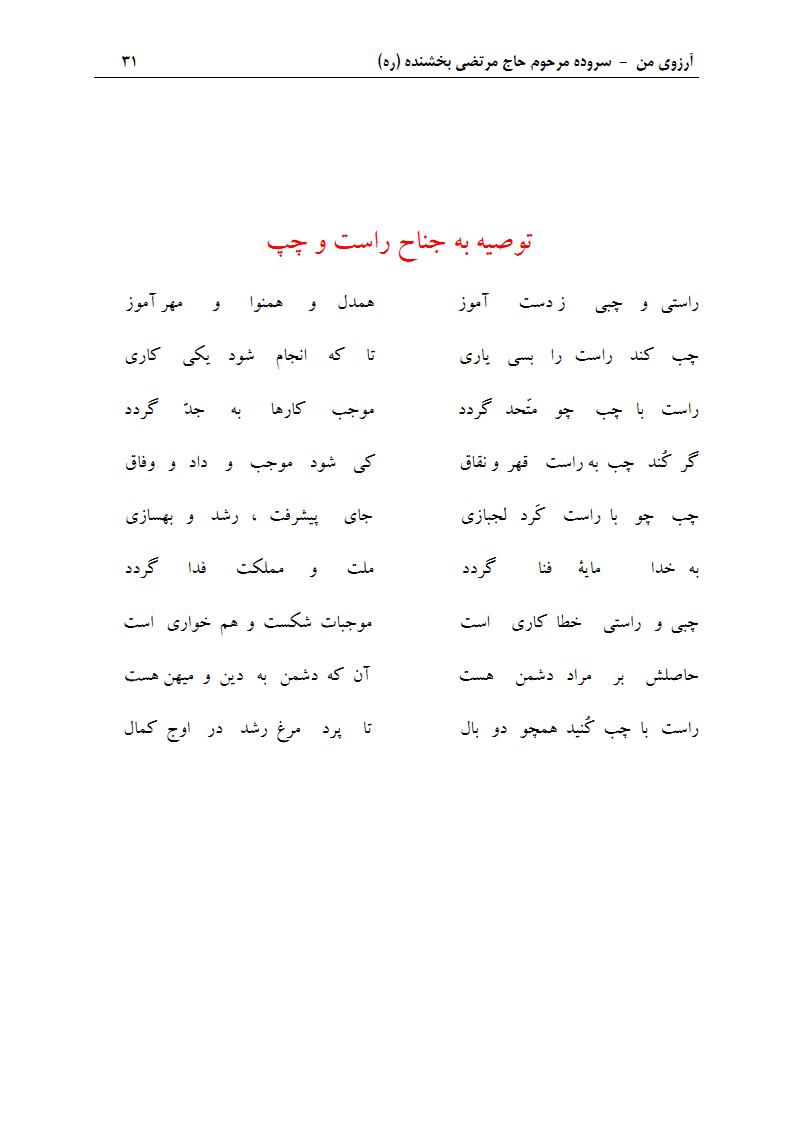 آرزوی من - سروده مرحوم حاج مرتضی بخشنده (ره) ۳۱
توصیه به جناح راست و چپ
راستی و چپی ز دست آموز همدل و همنوا و مهر آموز
چپ کند راست را بسی یاری تا که انجام شود یکی کاری
راست با چپ چو متّحد گردد موجب کارها به جدّ گردد
گر کُند چپ به راست قهر و نقاق کی شود موجب و داد و وفاق
چپ چو با راست کَرد لجبازی جای پیشرفت ، رشد و بهسازی
به خدا مایهٔ فنا گردد ملت و مملکت فدا گردد
چپی و راستی خطا کاری است موجبات شکست و هم خواری است
حاصلش بر مراد دشمن هست آن که دشمن به دین و میهن هست
راست با چپ کُنید همچو دو بال تا پرد مرغ رشد در اوج کمال